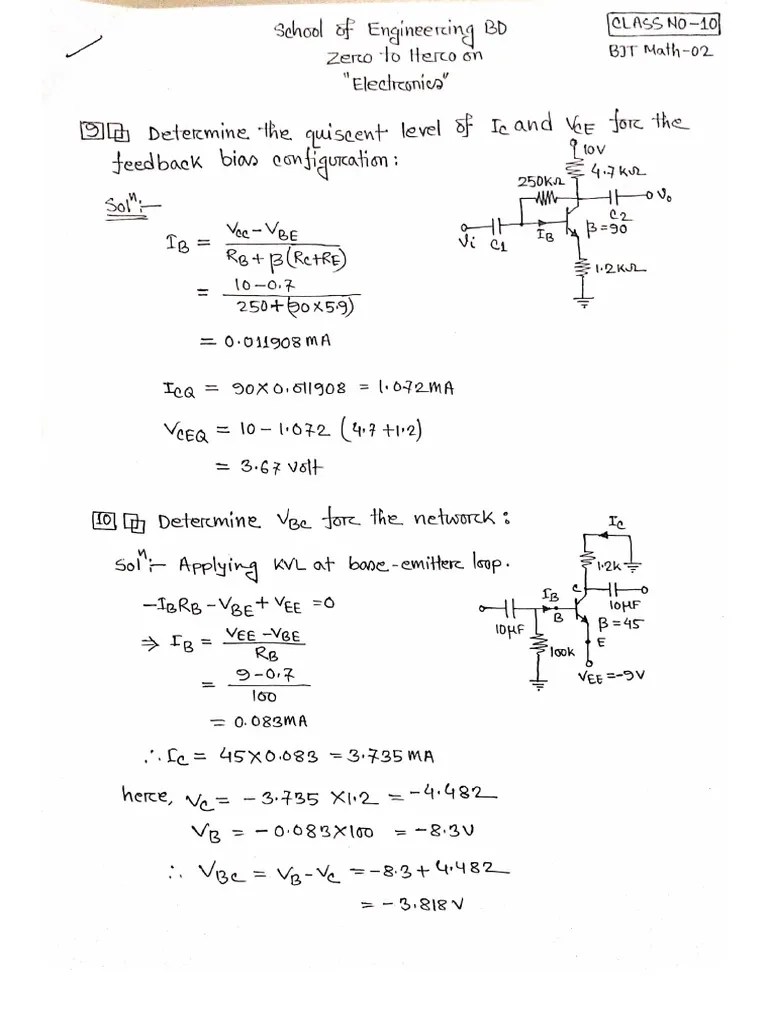 School of Engineering BD
Zero to Hero on
"Electronics"
CLASS NO-10
BJT Math-02
9 Determine the quiscent level of IC and VCE for the
feedback bias configuration:
10V
4.7KΩ
250KΩ
Vo
C2
β=90
IB
Vi
C1
1.2KΩ
Solⁿ:-
IB = VCC-VBE / RB+β(RC+RE)
= 10-0.7 / 250+(90×5.9)
= 0.011908 MA
ICQ = 90×0.011908 = 1.072MA
VCEQ = 10-1.072 (4.7+1.2)
= 3.67 volt
10 Determine VBC for the network:
Solⁿ:- Applying KVL at base-emitter loop.
-IBRB-VBE+VEE=0
⇒ IB = VEE-VBE / RB
= 9-0.7 / 100
= 0.083MA
∴ IC = 45×0.083 = 3.735 MA
here, VC = -3.735 ×1.2 = -4.482
VB = -0.083×100 = -8.3V
∴ VBC = VB-VC = -8.3+4.482
= -3.818 V
IC
1.2k
C
10μF
IB
B
10μF
β=45
E
100k
VEE=-9V